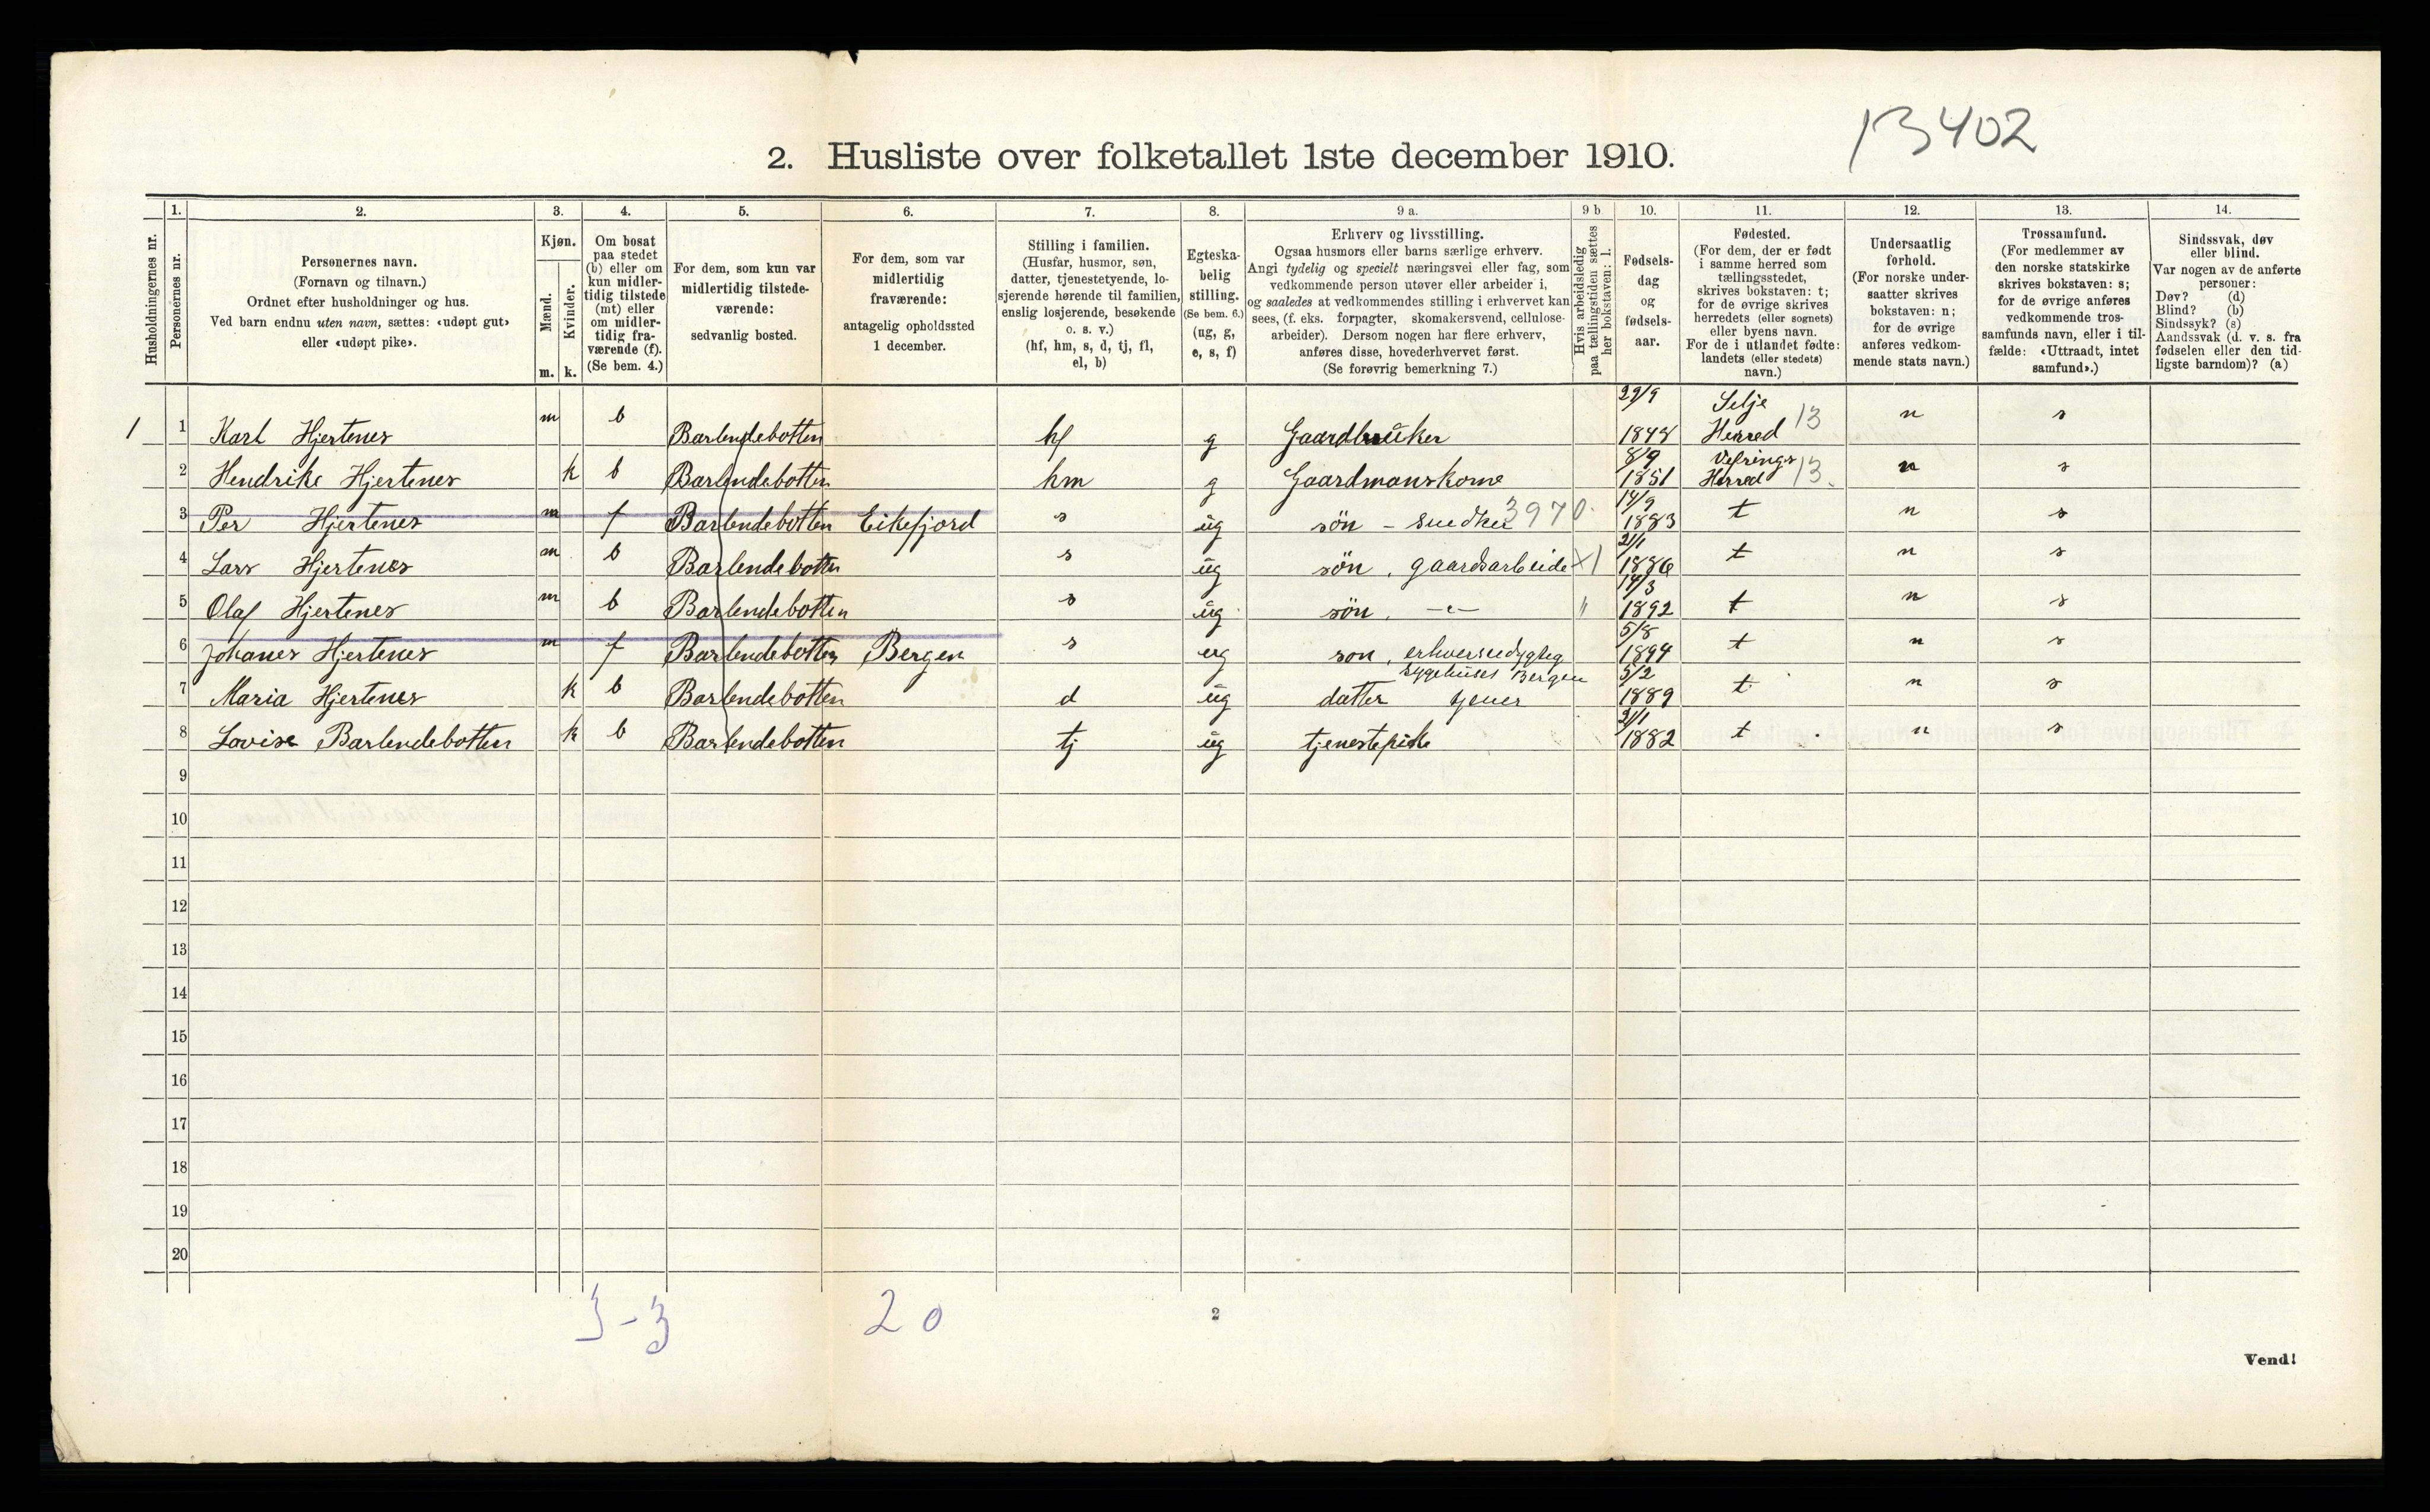 13402
2. Husliste over folketallet 1ste december 1910.
1. 2. 3. 4. 5. 6. 7. 8. 9 a. 9 b 10. 11. 12. 13. 14.
Husholdningernes nr.
Personernes nr.
Personernes navn.
(Fornavn og tilnavn.)
Ordnet efter husholdninger og hus.
Ved barn endnu uten navn, sættes: «udøpt gut»
eller «udøpt pike».
Kjøn.
Mænd.
Kvinder.
m. k.
Om bosat
paa stedet
(b) eller om
kun midler-
tidig tilstede
(mt) eller
om midler-
tidig fra-
værende (f).
(Se bem. 4.)
For dem, som kun var
midlertidig tilstede-
værende:
sedvanlig bosted.
For dem, som var
midlertidig
fraværende:
antagelig opholdssted
1 december.
Stilling i familien.
(Husfar, husmor, søn,
datter, tjenestetyende, lo-
sjerende hørende til familien,
enslig losjerende, besøkende
o. s. v.)
(hf, hm, s, d, tj, fl,
el, b)
Egteska-
belig
stilling.
(Se bem. 6.)
(ug, g,
e, s, f)
Erhverv og livsstilling.
Ogsaa husmors eller barns særlige erhverv.
Angi tydelig og specielt næringsvei eller fag, som
vedkommende person utøver eller arbeider i,
og saaledes at vedkommendes stilling i erhvervet kan
sees, (f. eks. forpagter, skomakersvend, cellulose-
arbeider). Dersom nogen har flere erhverv,
anføres disse, hovederhvervet først.
(Se forøvrig bemerkning 7.)
Hvis arbeidsledig
paa tællingstiden sættes
her bokstaven: l.
Fødsels-
dag
og
fødsels-
aar.
Fødested.
(For dem, der er født
i samme herred som
tællingsstedet,
skrives bokstaven: t;
for de øvrige skrives
herredets (eller sognets)
eller byens navn.
For de i utlandet fødte:
landets (eller stedets)
navn.)
Undersaatlig
forhold.
(For norske under-
saatter skrives
bokstaven: n;
for de øvrige
anføres vedkom-
mende stats navn.)
Trossamfund.
(For medlemmer av
den norske statskirke
skrives bokstaven: s;
for de øvrige anføres
vedkommende tros-
samfunds navn, eller i til-
fælde: «Uttraadt, intet
samfund».)
Sindssvak, døv
eller blind.
Var nogen av de anførte
personer:
Døv? (d)
Blind? (b)
Sindssyk? (s)
Aandssvak (d. v. s. fra
fødselen eller den tid-
ligste barndom)? (a)
1 1 Karl Hjertenes m b Barlendebotten hf g Gaardbruker 29/9 1848 Selje Herred 13 n s
2 Hendrike Hjertenes k b Barlendebotten hm g Gaardmanskone 8/9 1851 Vefrings Herred 13. n s
3 Per Hjertenes m f Barlendebotten Eikefjord s ug søn - snedker 3970. 14/9 1883 t n s
4 Lars Hjertenes m b Barlendebotten s ug søn, gaardsarbeide X1 21/1 1886 t n s
5 Olaf Hjertenes m b Barlendebotten s ug søn, -"- " 14/3 1892 t n s
6 Johanes Hjertenes m f Barlendebotten Bergen s ug son, erhversudygtig 5/8 1894 t n s
sygehuset Bergen
7 Maria Hjertenes k b Barlendebotten d ug datter tjener 5/2 1889 t n s
8 Lovise Barlendebotten k b Barlendebotten tj ug tjenestepike 21/1 1882 t n s
9
10
11
12
13
14
15
16
17
18
19
20
3-3 20
2
Vend!